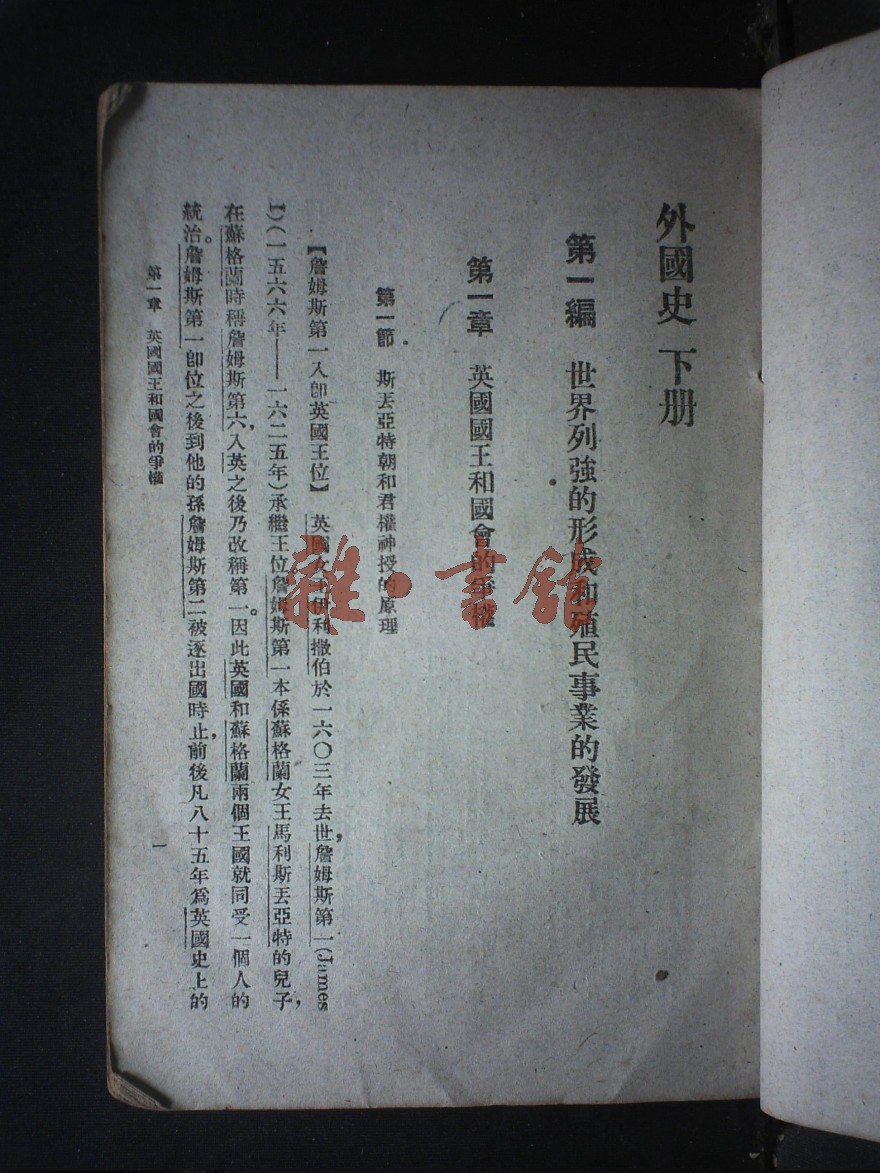 外國史 下册
第一編 世界列強的形成和殖民事業的發展
第一章 英國國王和國會的爭權
第一節 斯丟亞特朝和君權神授的原理
【詹姆斯第一入卽英國王位】 英國女王伊利撒伯於一六〇三年去世,詹姆斯第一(James
I)(一五六六年——一六二五年)承繼王位。詹姆斯第一本係蘇格蘭女王馬利斯丟亞特的兒子,
在蘇格蘭時稱詹姆斯第六,入英之後乃改稱第一。因此英國和蘇格蘭兩個王國就同受一個人的
統治。詹姆斯第一卽位之後到他的孫詹姆斯第二被逐出國時止,前後凡八十五年爲英國史上的
第一章 英國國王和國會的爭權
一
雜·書館